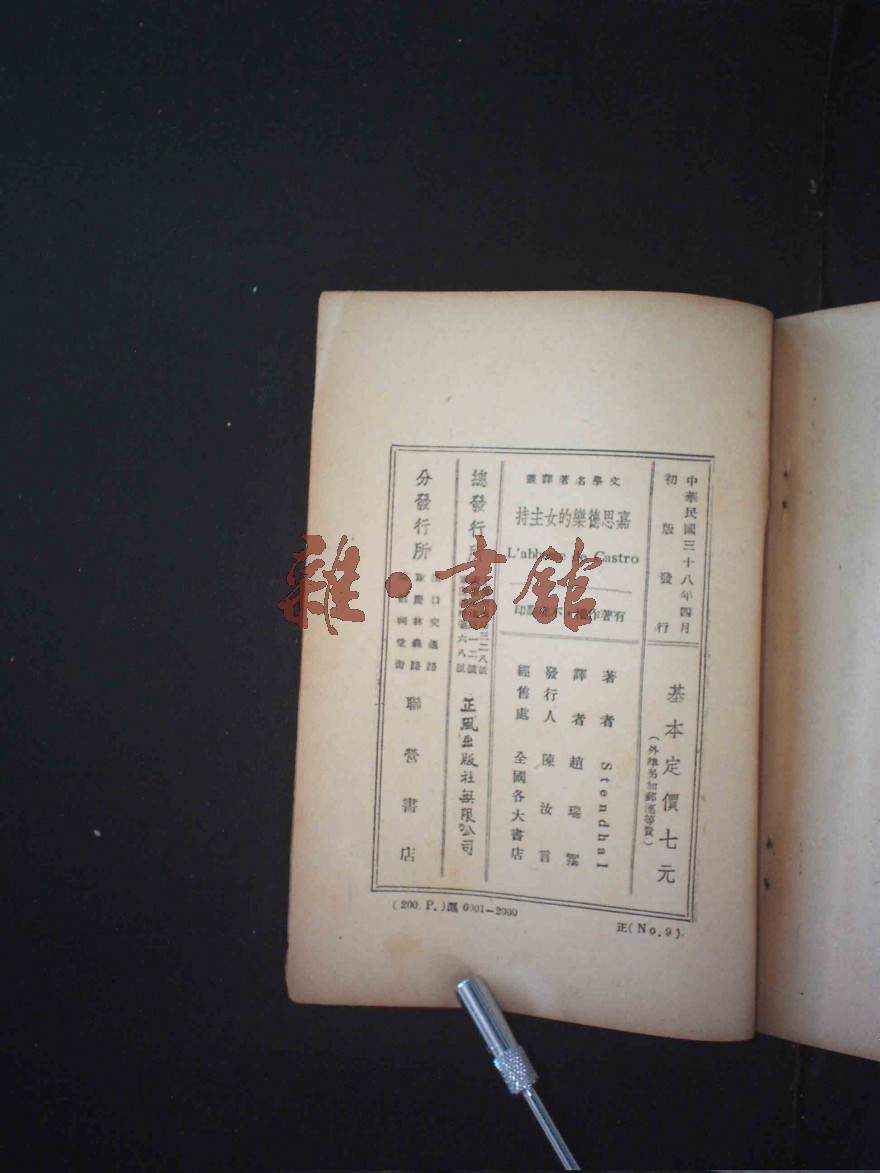 中華民國三十八年四月
初版發行
基本定價七元
(外埠另加郵運等費)
文學名著譯叢
嘉思德樂的女主持
Castro
有著作權
印
著者 Stendhal
譯者 趙瑞霟
發行人 陳汝言
經售處 全國各大書店
總發行所
正風出版社無限公司
分發行所
口交通路
慶林森路
祠堂街
聯營書店
(200. P.)滬 0001—2000
正(No.9)
雜·書館